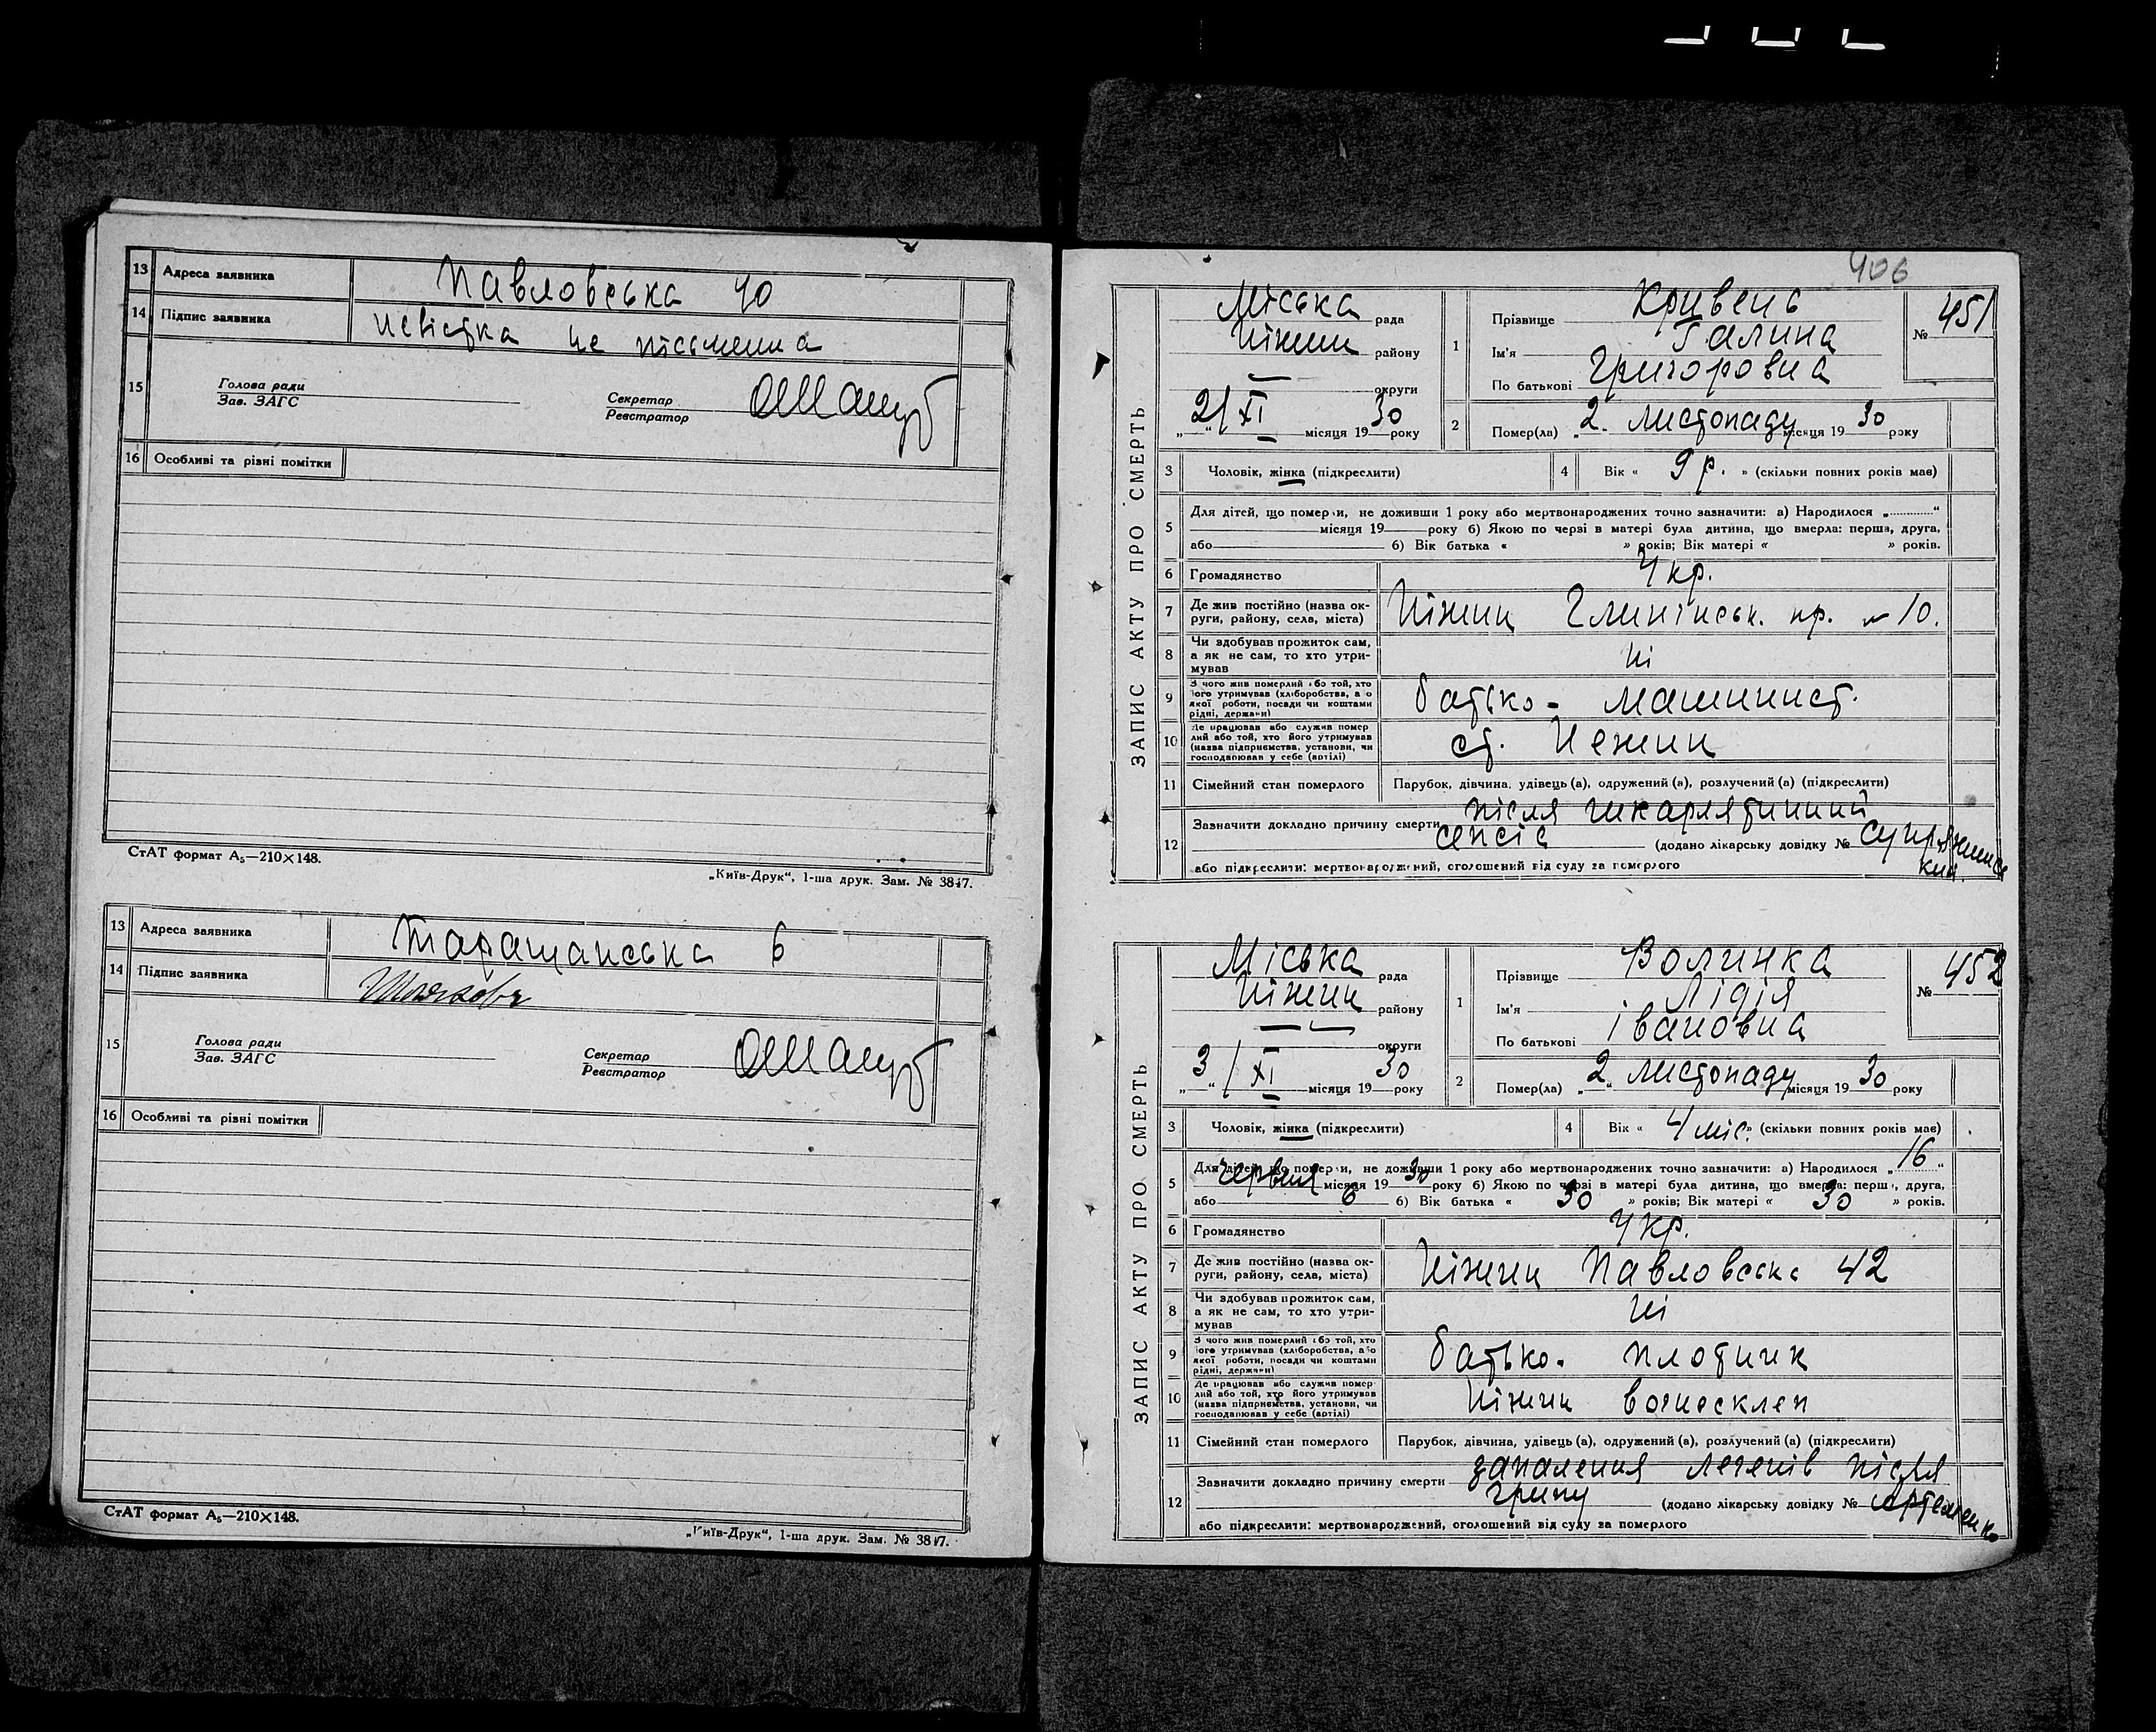 13 Адреса заявника Павловська 40
14 Підпис заявника невістка не письменна
15 Голова ради
Зав. ЗАГС
Секретар
Реєстратор
16 Особливі та різні помітки
СтАТ формат А₅—210×148.
„Київ-Друк“, 1-ша друк. Зам. № 3847.
13 Адреса заявника Таращанська 6
14 Підпис заявника
15 Голова ради
Зав. ЗАГС
Секретар
Реєстратор
16 Особливі та різні помітки
СтАТ формат А₅—210×148.
„Київ-Друк“, 1-ша друк. Зам. № 3847.
406
ЗАПИС АКТУ ПРО СМЕРТЬ
Міська рада
Ніжин району
округи
„2“ / XI місяця 1930 року
1 Прізвище Кривень
Ім'я Галина
По батькові Григоровна
№ 451
2 Помер(ла) „2. листопаду місяця 1930 року
3 Чоловік, жінка (підкреслити)
4 Вік « 9 р. » (скільки повних років має)
5 Для дітей, що померли, не доживши 1 року або мертвонароджених точно зазначити: а) Народилося „ “
місяця 19 року б) Якою по черзі в матері була дитина, що вмерла: перша, друга,
або б) Вік батька « » років; Вік матері « » років.
6 Громадянство Укр.
7 Де жив постійно (назва округи, району, села, міста) Ніжин Глинінськ. пр. № 10.
8 Чи здобував прожиток сам, а як не сам, то хто утримував ні
9 З чого жив померлий або той, хто його утримував (хліборобства, або якої роботи, посади чи коштами рідні, держави) батько - машинист.
10 Де працював або служив померлий або той, хто його утримував (назва підприємства, установи, чи господарював у себе (артілі) ст. Нежин
11 Сімейний стан померлого Парубок, дівчина, удівець (а), одружений (а), розлучений (а) (підкреслити)
12 Зазначити докладно причину смерти після шкарлятинний
сепсіс (додано лікарську довідку №
або підкреслити: мертвонароджений, оголошений від суду за померлого
ЗАПИС АКТУ ПРО СМЕРТЬ
Міська рада
Ніжин району
округи
„3“ / XI місяця 1930 року
1 Прізвище Волинка
Ім'я Лідія
По батькові Івановна
№ 452
2 Помер(ла) „2“ листопаду місяця 1930 року
3 Чоловік, жінка (підкреслити)
4 Вік « 4 міс. » (скільки повних років має)
5 Для дітей, що померли, не доживши 1 року або мертвонароджених точно зазначити: а) Народилося „16“
червня місяця 1930 року б) Якою по черзі в матері була дитина, що вмерла: перша, друга,
або 6 б) Вік батька « 30 » років; Вік матері « 30 » років.
6 Громадянство Укр.
7 Де жив постійно (назва округи, району, села, міста) Ніжин Павловська 42
8 Чи здобував прожиток сам, а як не сам, то хто утримував ні
9 З чого жив померлий або той, хто його утримував (хліборобства, або якої роботи, посади чи коштами рідні, держави) батько - плотник
10 Де працював або служив померлий або той, хто його утримував (назва підприємства, установи, чи господарював у себе (артілі) Ніжин
11 Сімейний стан померлого Парубок, дівчина, удівець (а), одружений (а), розлучений (а) (підкреслити)
12 Зазначити докладно причину смерти запалення легенів після
грипу (додано лікарську довідку № Артеменко
або підкреслити: мертвонароджений, оголошений від суду за померлого